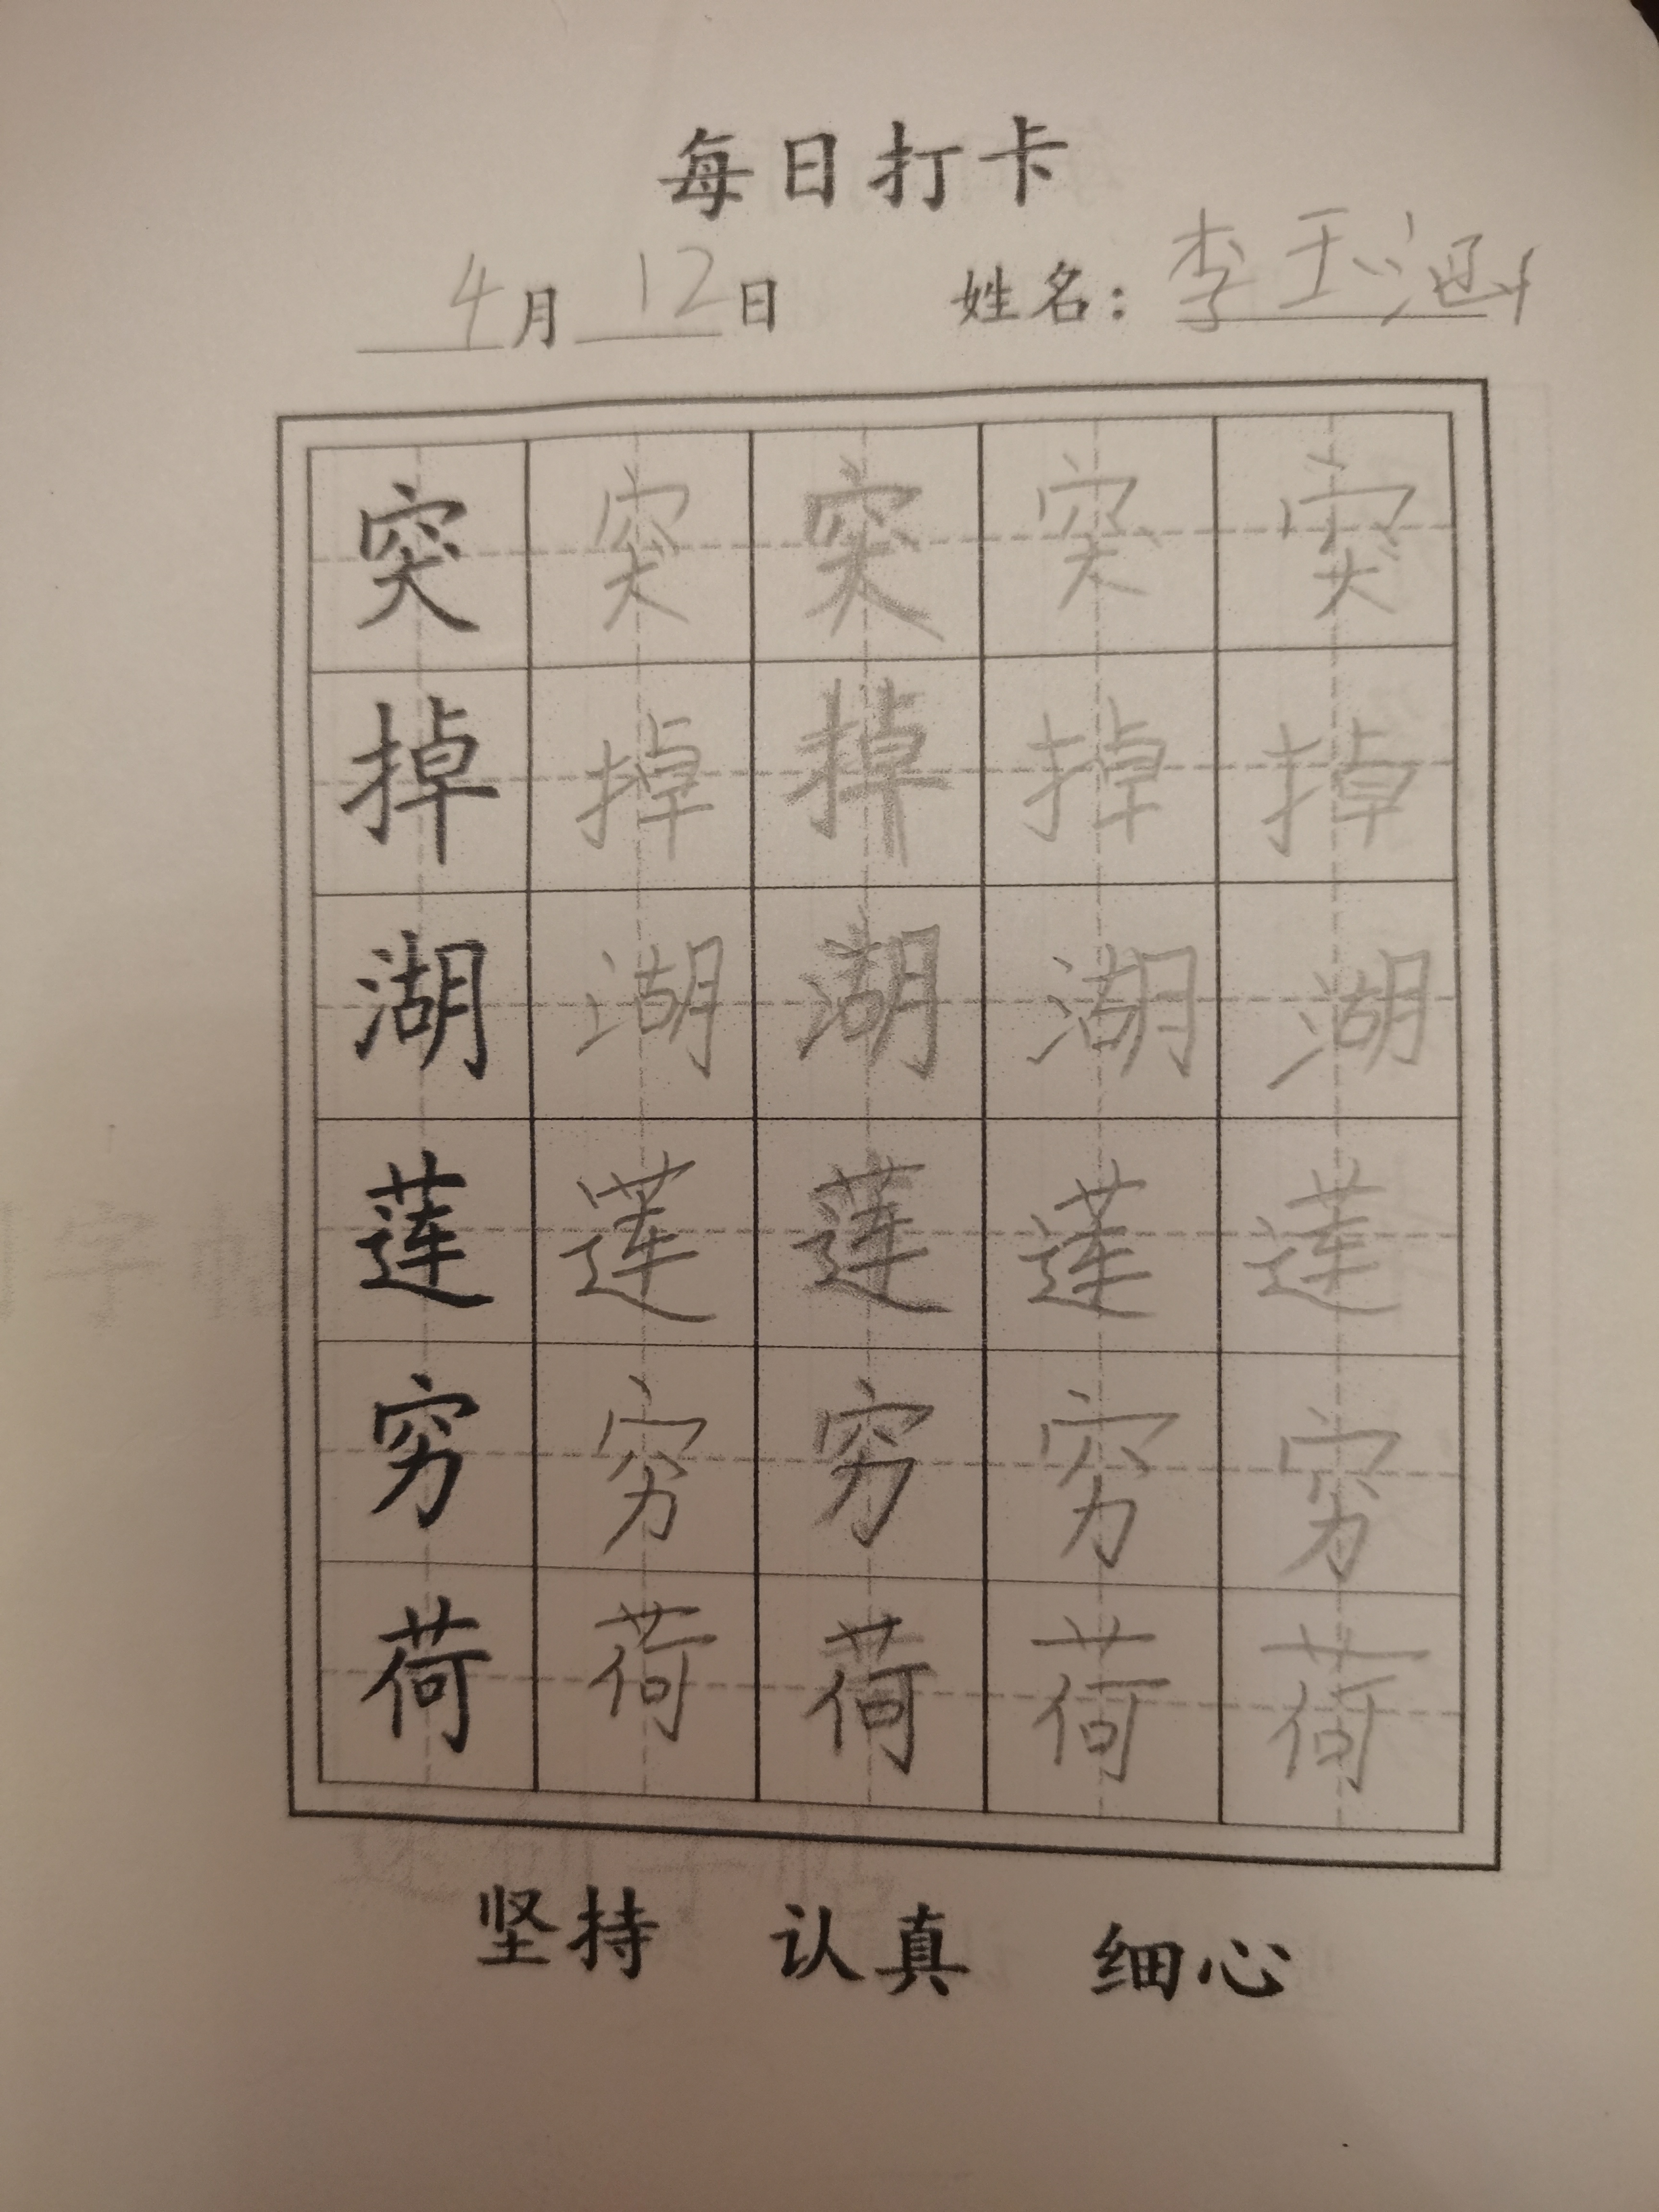 每日打卡
4月12日 姓名：李玉涵
突 突 突 突 突
掉 掉 掉 掉 掉
湖 湖 湖 湖 湖
莲 莲 莲 莲 莲
穷 穷 穷 穷 穷
荷 荷 荷 荷 荷
坚持 认真 细心